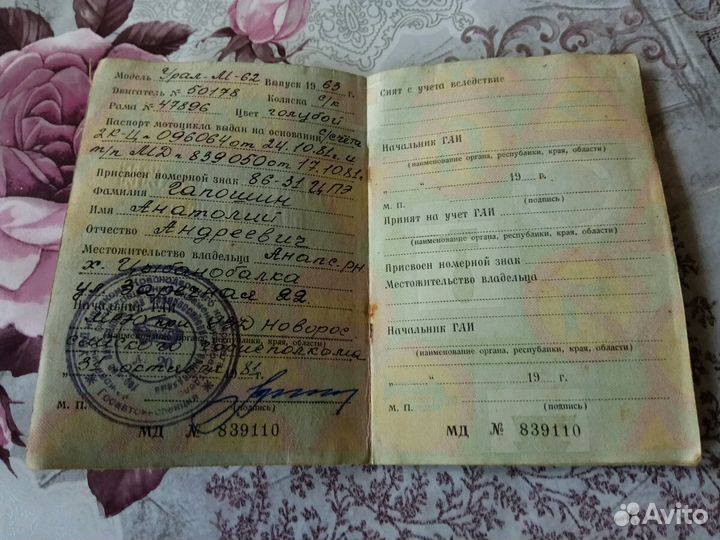 Модель Урал-М-62 Выпуск 1963 г.
Двигатель № 50178 Коляска с/к
Рама № 47896 Цвет голубой
Паспорт мотоцикла выдан на основании с/счета
2К-Ц № 096064 от 24.10.81г. и
т/п МД № 839050 от 17.10.81г.
Присвоен номерной знак 86-31 ЦПЭ
Фамилия Гапошин
Имя Анатолий
Отчество Андреевич
Местожительство владельца Анапс. рн
х. Цыбанобалка
ул. 22
Начальник ГАИ
ОВД Новорос
(наименование органа, республики, края, области)
горисполкома
1981 г.
М. П. (подпись)
МД № 839110
Снят с учета вследствие
Начальник ГАИ
(наименование органа, республики, края, области)
„ “ 19 г.
М. П. (подпись)
Принят на учет ГАИ
(наименование органа, республики, края, области)
Присвоен номерной знак
Местожительство владельца
Начальник ГАИ
(наименование органа, республики, края, области)
„ “ 19 г.
М. П. (подпись)
МД № 839110
Avito